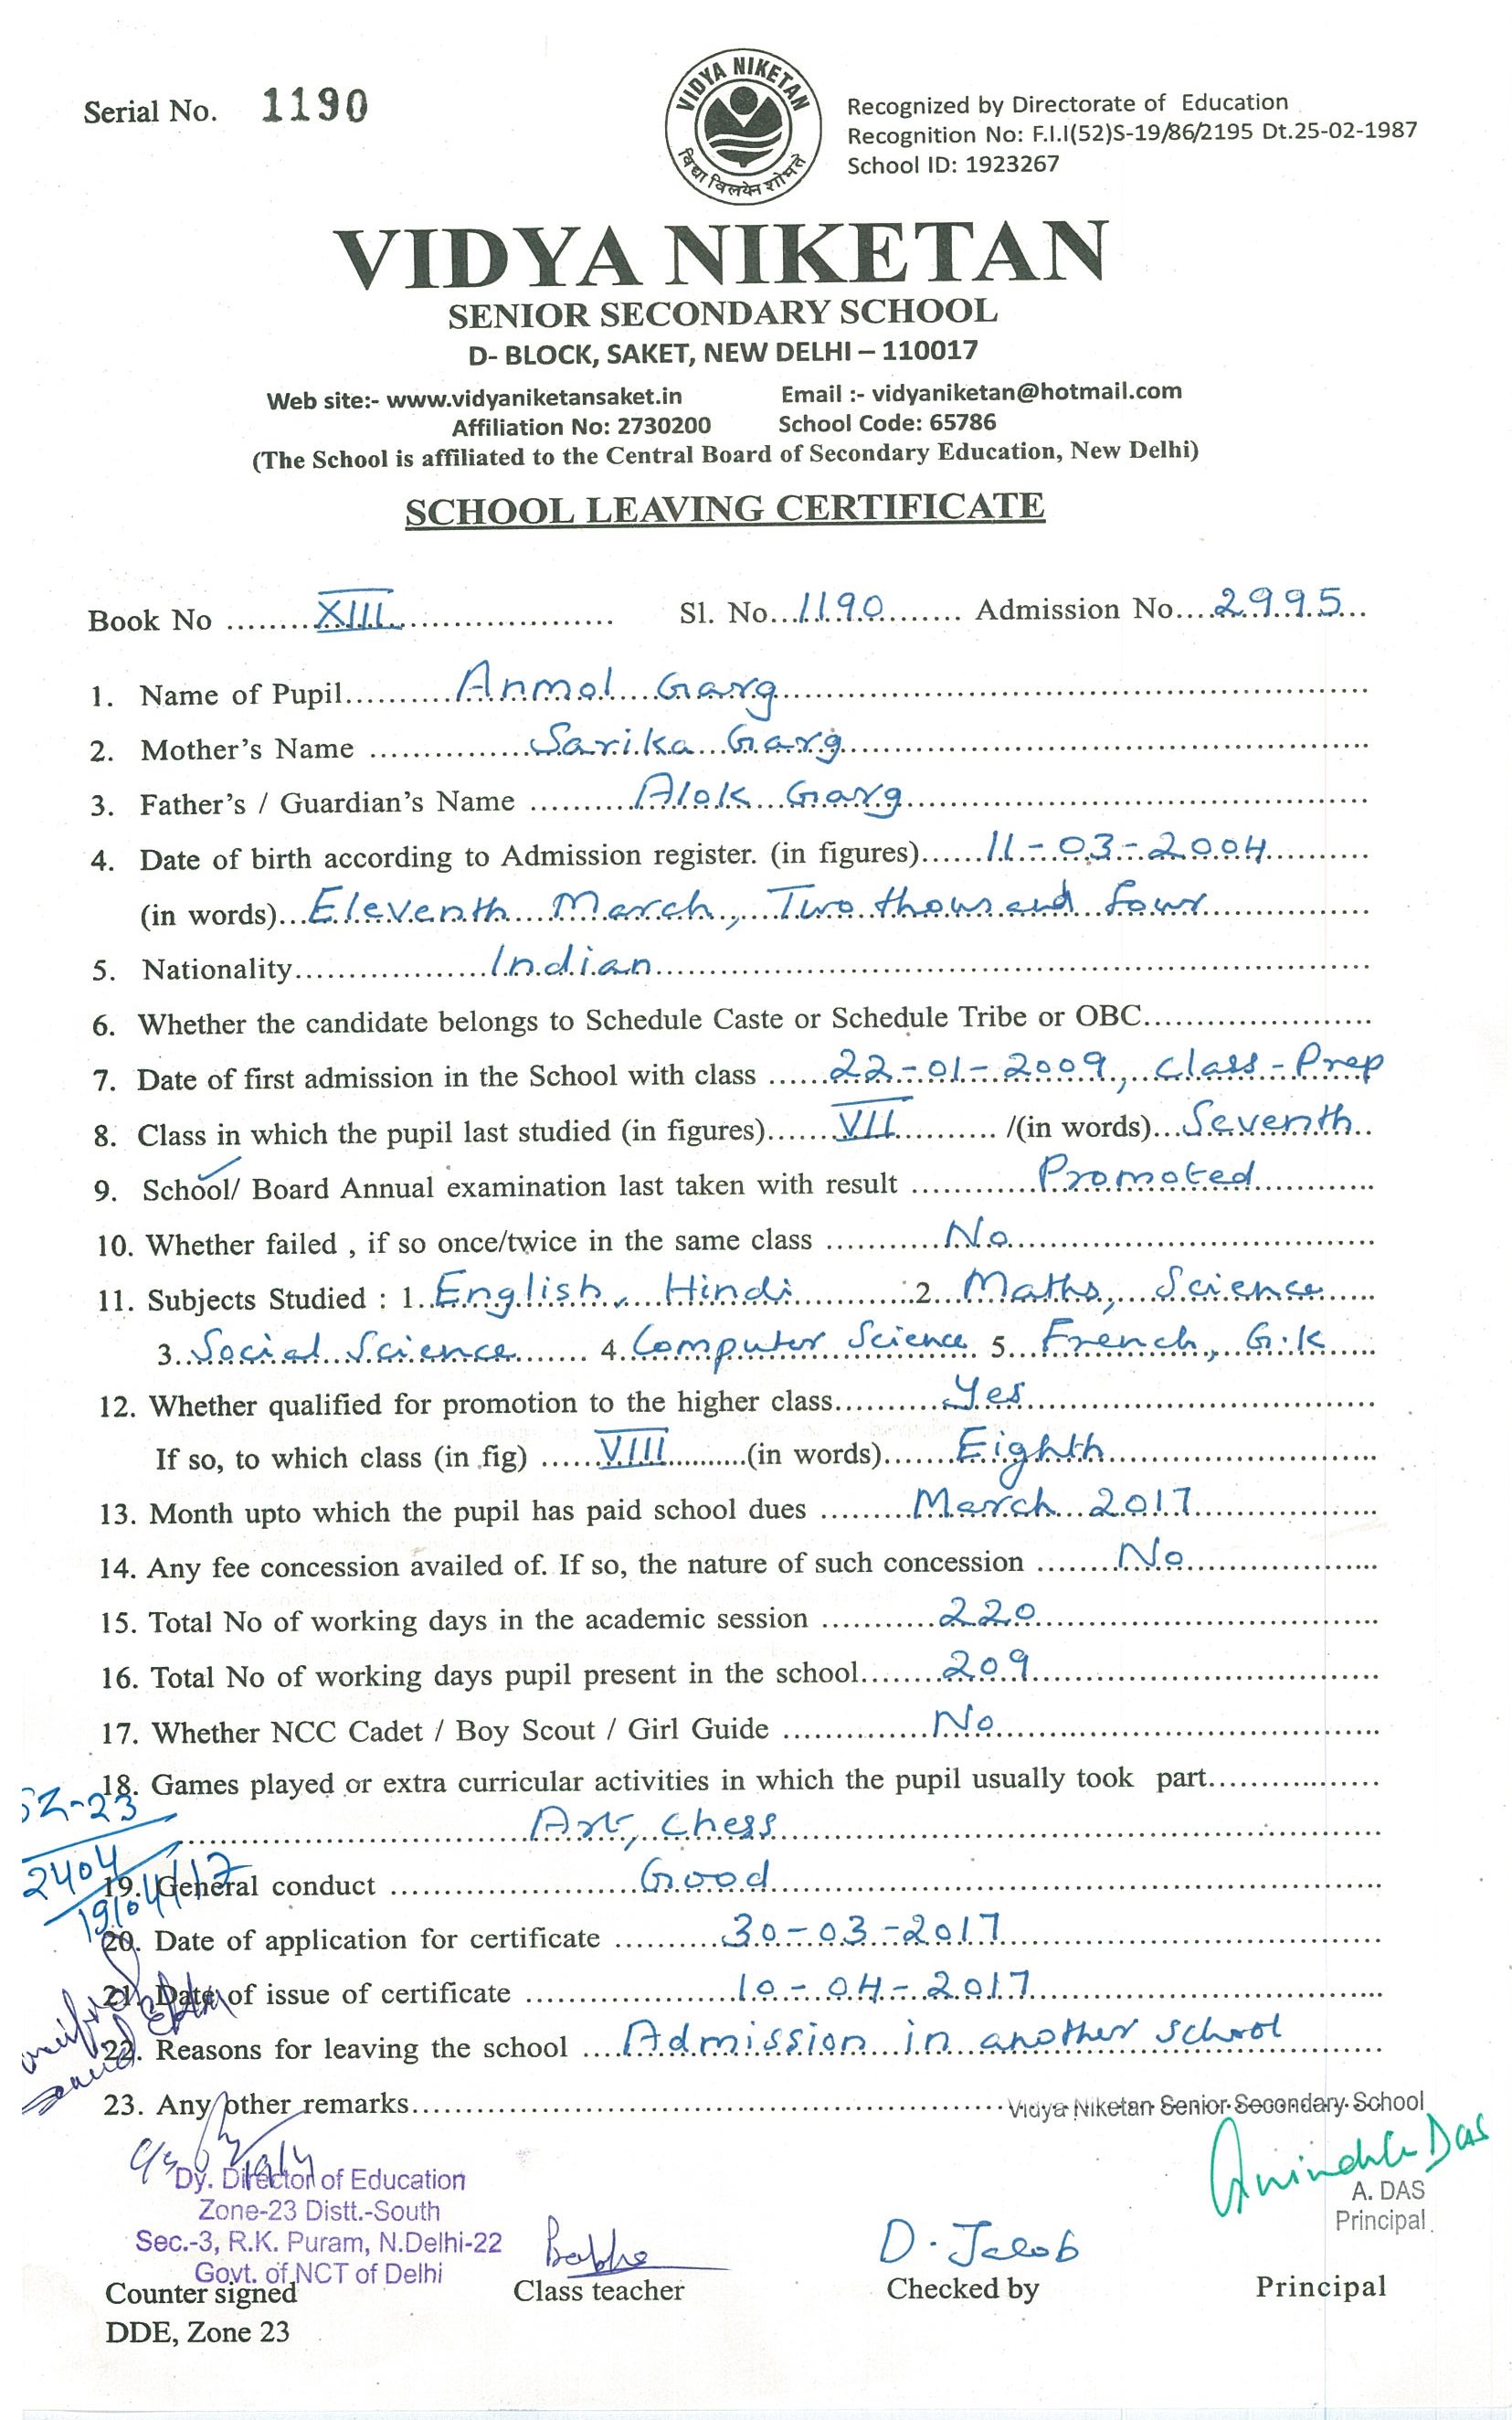 Serial No. 1190
VIDYA NIKETAN
Recognized by Directorate of Education
Recognition No: F.I.I(52)S-19/86/2195 Dt.25-02-1987
School ID: 1923267
VIDYA NIKETAN
SENIOR SECONDARY SCHOOL
D- BLOCK, SAKET, NEW DELHI – 110017
Web site:- www.vidyaniketansaket.in Email :- vidyaniketan@hotmail.com
Affiliation No: 2730200 School Code: 65786
(The School is affiliated to the Central Board of Secondary Education, New Delhi)
SCHOOL LEAVING CERTIFICATE
Book No ........XIII.................... Sl. No...1190........ Admission No....2995...
1. Name of Pupil.........Anmol Garg
2. Mother's Name ............Sarika Garg
3. Father's / Guardian's Name ........Alok Garg
4. Date of birth according to Admission register. (in figures)......11-03-2004
(in words)...Eleventh March, Two thousand four
5. Nationality................Indian
6. Whether the candidate belongs to Schedule Caste or Schedule Tribe or OBC....................
7. Date of first admission in the School with class ......22-01-2009, Class-Prep
8. Class in which the pupil last studied (in figures)......VII.......... /(in words)...Seventh..
9. School/ Board Annual examination last taken with result ...........Promoted
10. Whether failed , if so once/twice in the same class ..........No
11. Subjects Studied : 1..English, Hindi..........2..Maths, Science
3..Social Science...... 4.Computer Science 5...French, G.K
12. Whether qualified for promotion to the higher class..........Yes
If so, to which class (in fig) ......VIII.........(in words).......Eighth
13. Month upto which the pupil has paid school dues .........March 2017
14. Any fee concession availed of. If so, the nature of such concession .......No
15. Total No of working days in the academic session ..........220
16. Total No of working days pupil present in the school.......209
17. Whether NCC Cadet / Boy Scout / Girl Guide .............No
18. Games played or extra curricular activities in which the pupil usually took part................
Art, Chess
2404
19/04/17
19. General conduct ......................Good
20. Date of application for certificate .........30-03-2017
21. Date of issue of certificate ..................10-04-2017
22. Reasons for leaving the school ....Admission in another school
23. Any other remarks..............................................
Vidya Niketan Senior Secondary School
Dy. Director of Education
Zone-23 Distt.-South
Sec.-3, R.K. Puram, N.Delhi-22
Govt. of NCT of Delhi
Anindita Das
A. DAS
Principal
D. Jacob
Counter signed Class teacher Checked by Principal
DDE, Zone 23